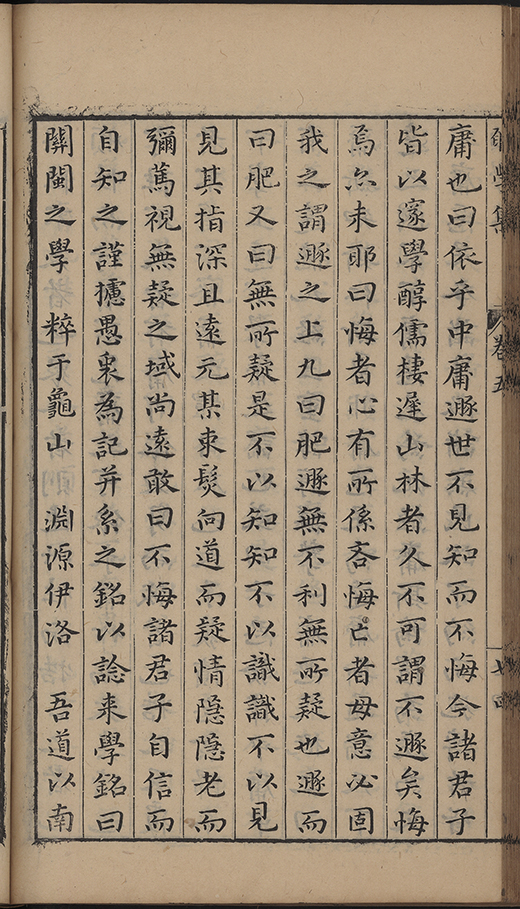 卷五
庸也曰依乎中庸遯世不見知而不悔今諸君子
皆以邃學醇儒棲遲山林者久不可謂不遯矣悔
焉尒未耶曰悔者心有所係吝悔亡者毋意必固
我之謂遯之上九曰肥遯無不利無所疑也遯而
曰肥又曰無所疑是不以知知不以識識不以見
見其指深且遠元某束髮向道而疑情隱隱老而
彌篤視無疑之域尚遠敢曰不悔諸君子自信而
自知之謹攄愚衷為記并系之銘以諗来學銘曰
關閩之學 粹于龜山 淵源伊洛 吾道以南